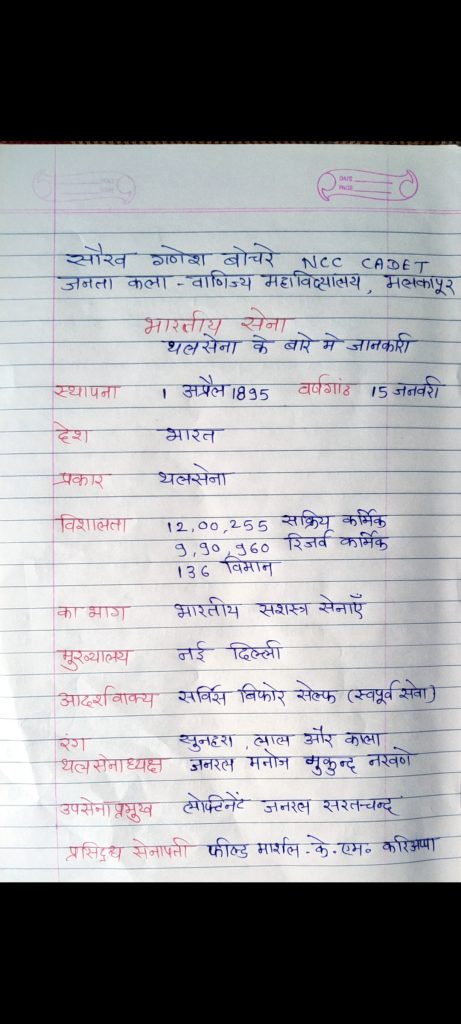 DATE
PAGE
सौरव गणेश बोचरे NCC CADET
जनता कला - वाणिज्य महाविद्यालय, मलकापूर
भारतीय सेना
थलसेना के बारे मे जानकारी
स्थापना 1 अप्रैल 1895 वर्षगांठ 15 जनवरी
देश भारत
प्रकार थलसेना
विशालता 12,00,255 सक्रिय कर्मिक
9,90,960 रिजर्व कार्मिक
136 विमान
का भाग भारतीय सशस्त्र सेनाएँ
मुख्यालय नई दिल्ली
आदर्शवाक्य सर्विस बिफोर सेल्फ (स्वपूर्व सेवा)
रंग सुनहरा, लाल और काला
थलसेनाध्यक्ष जनरल मनोज मुकुन्द नरवणे
उपसेनाप्रमुख जनरल सरतचन्द
प्रसिद्ध सेनापती फील्ड मार्शल - के. एम. करिअप्पा